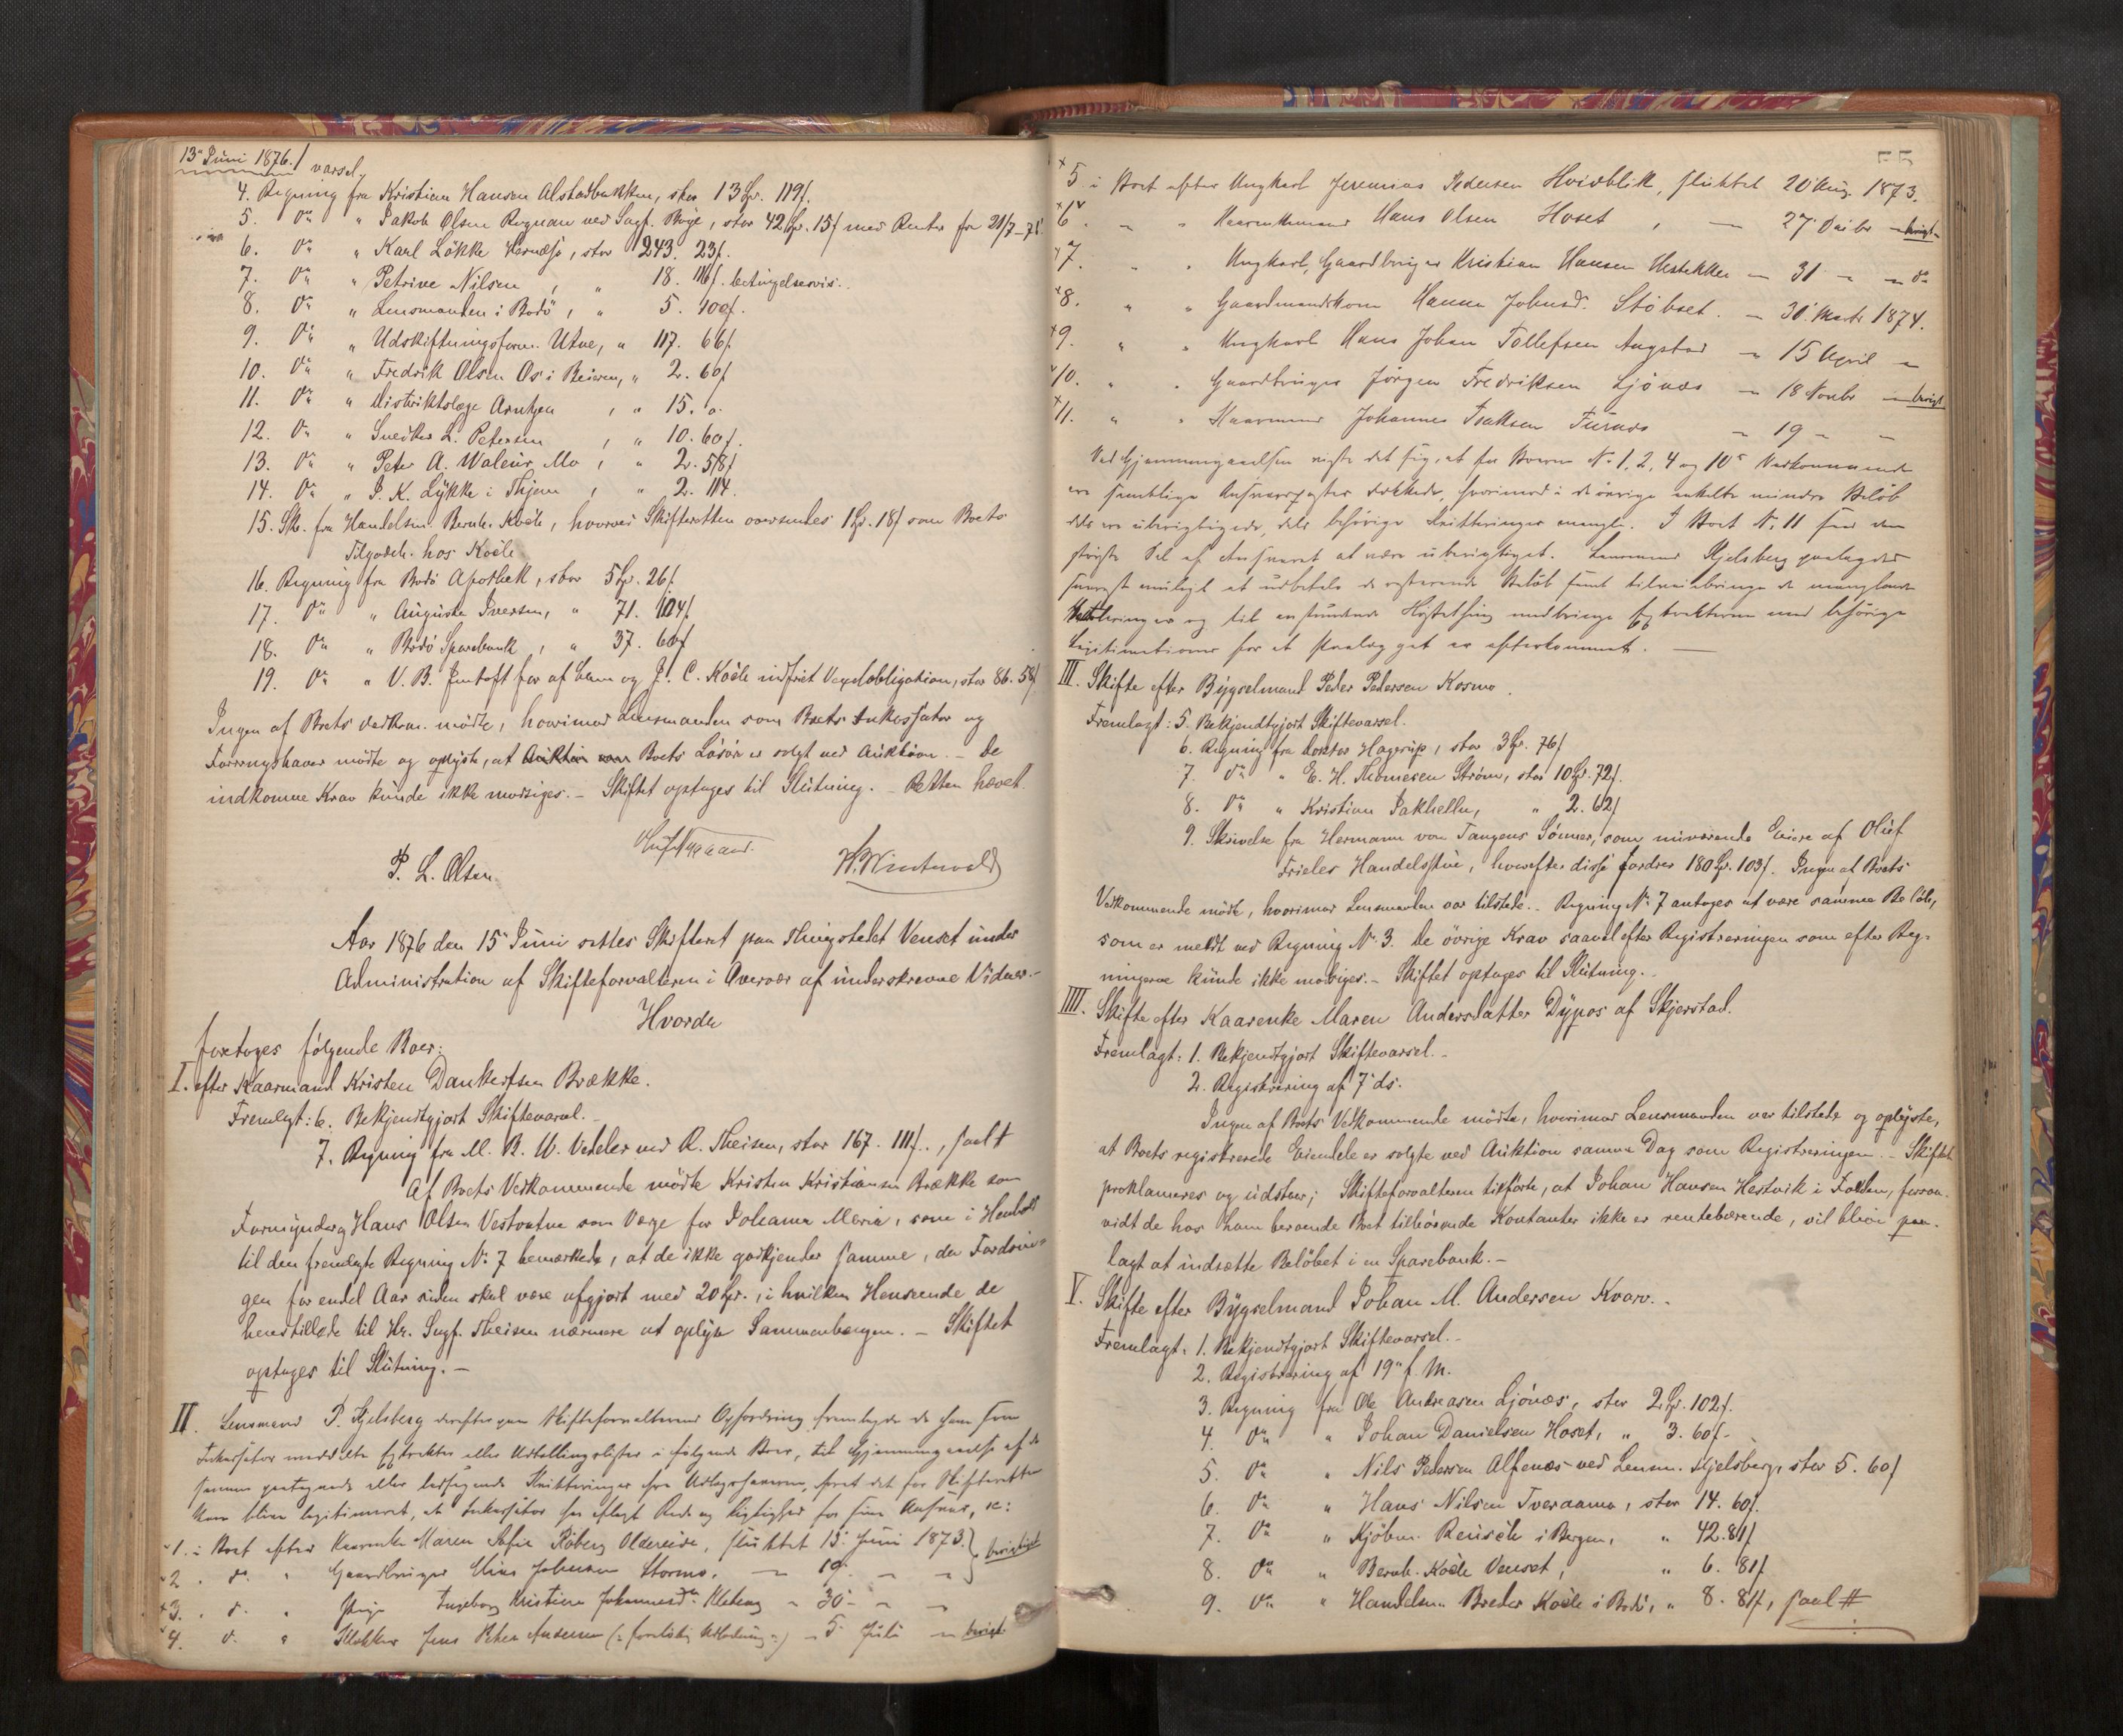 13de Juni 1876.
varsel.
4. Regning fra Kristian Hansen Alstadbakken, stor 13 Spd. 119 ſ.
5. do " Jakob Olsen Rognan ved Sagf. Boye, stor 42 Spd. 15 ſ med Renter fra 21/7-71.
6. do " Karl Løkke Hernæsø, stor 243. 23 ſ.
7. do " Petrine Nilsen , " 18. 116 ſ. betingelsesvis.
8. do " Lensmanden i Bodö, " 5. 100 ſ.
9. do " Udskiftningsform. Utne, " 117. 66 ſ.
10. do " Fredrik Olsen Os i Beieren, " 2. 60 ſ
11. do " Distriktslæge Arntzen , " 15. 0.
12. do " Snedker L. Petersen , " 10. 60 ſ.
13. do " Peter A. Waleur, Mo , " 2. 58 ſ
14. do " J. K. Lykke i Thjem , " 2. 114.
15. Sk. fra Handelsm. Bernh. Koch, hvorved Skifteretten oversendes 1 Spd. 18 ſ som Boets
Tilgodeh. hos Koch
16. Regning fra Bodö Apothek, stor 5 Spd. 26 ſ.
17. do " Augusta Iversen, " 71. 104 ſ.
18. do " Bodö Sparebank , " 37. 60 ſ
19. do " V. B. Jentoft for af ham og J. C. Koch indfriet Vexelobligation, stor 86. 58 ſ
Ingen af Boets Vedkom. mödte, hvorimod Lensmanden som Boets Inkassator og
Forretngshaver mödte og oplyste, at Boets Lösöre er solgt ved Auktion. – De
indkomne Krav kunde ikke modsiges. – Skiftet optages til Slutning. – Retten hævet.
P. L. Olsen
Aar 1876 den 15de Juni settes Skifteret paa Thingstedet Venset under
Administration af Skifteforvalteren i Overvær af underskrevne Vidner. –
Hvorda
foretoges fölgende Boer:
I. efter Kaarmand Kristen Dankertsen Brække.
Fremlagt: 6. Bekjendtgjort Skiftevarsel. –
7. Regning fra M. R. U. Vedeler ved R. Theisen, stor 167. 111 ſ.,
Af Boets Vedkommende mödte Kristen Kristiansen Brække som
Formynder og Hans Olsen Vestvatne som Værge for Johanna Maria, som i Henhold
til den fremlagte Regning No 7 bemærkede, at de ikke godkjender samme, da Fordrin-
gen for endel Aar siden skal være afgjort med 20 Spd., i hvilken Henseende de
henstillede til Hr. Sagf. Theisen nærmere at oplyse Sammenhængen. – Skiftet
optages til Slutning. –
II. Lensmand P. Kjelsberg derefter paa Skifteforvalterens Opfordring fremlagde de ham som
Inkassator meddelte Extrakter eller Udtællingslister i fölgende Boer, til Gjennemgaaelse af de
samme paategnede eller ledsagende Kvitteringer fra Udlægshaverne, forat det for Skifteretten
kan blive legitimeret, at Inkassator har aflagt Rede og Rigtighed for sine Ansvar, :
1. i Boet efter Kaarenke Maren Sofie Röberg Oldereide, sluttet 13de Juni 1873. berigtiget
2. do. " Gaardbruger Johnsen Stormo, – 19. – –
3. do. " Pige Ingeborg Kristine Johannesdtr – 30 – –
4. do. " Klokker Jens Peter Andersen (foreløbig Udlodning) – 5 Juli – berigt.
5 i Boet efter Ungkarl Jeremias Pedersen Hvidblik, sluttet 20 Aug. 1873.
6. – " Kaarmand Hans Olsen Hoset , – 27 Decbr – berigt.
7. " " Ungkarl, Gaardbruger Kristian Hansen – 31 – – do
8. " " Gaardmandskone Hanna Johnsd. Stöbset. – 30 Marts 1874.
9. " " Ungkarl Hans Johan Tollefsen Angstad – 15 April –
10. " " Gaardbruger Jörgen Fredriksen Ljönæs – 18 Novbr – berigt
11. " " Kaarmand Johannes Isaksen Furnes – 19 – –
Ved Gjennemgaaelsen viste det sig, at for Boerne No 1, 2, 4 og 10s Vedkommende
ere samtlige Ansvarsposter dækkede, hvorimod i de övrige enkelte mindre Belöb
dels ere uberigtigede, dels behörige Kvitteringer mangle. I Boet No 11 sees den
störste Del af Ansvaret at være uberigtiget. Lensmand Kjelsberg paalagdes
snarest muligt at udbetale de resterende Belöb samt tilveiebringe de manglende
Kvitteringer og til anstundende Høstething medbringe Extrakterne med behörige
Legitimationer for at Paalægget er efterkommet. –
III. Skifte efter Bygselmand Peder Pedersen Kosmo.
Fremlagt: 5. Bekjendtgjort Skiftevarsel.
6. Regning fra Doktor Hagerup, stor 3 Spd. 76 ſ
7. do " E. H. Thomesen Ström, stor 10 Spd. 72 ſ.
8. do " Kristian Jakhelln, " 2. 62 ſ
9. Skrivelse fra Hermann von Tangens Sönner, som nuværende Eiere af Oluf
Frieles Handelsstue, hvorefter disse fordrer 180 Spd. 103 ſ. Ingen af Boets
Vedkommende mödte, hvorimod Lensmanden var tilstede. – Regning No 7 antages at være samme Belöb,
som er meldt ved Regning No 3. De övrige Krav saavel efter Registreringen som efter Reg-
ningerne kunde ikke modsiges. – Skiftet optages til Slutning. –
IIII. Skifte efter Kaarenke Maren Andersdatter Dypos af Skjerstad.
Fremlagt: 1. Bekjendtgjort Skiftevarsel. –
2. Registrering af 7de ds.
Ingen af Boets Vedkommende mödte, hvorimod Lensmanden var tilstede og oplyste,
at Boets registrerede Eiendele er solgte ved Auktion samme Dag som Registreringen. – Skiftet
proklameres og udstaar; Skifteforvalteren tilförte, at Johan Hansen Hestvik i Folden, forsaa-
vidt de hos ham beroende Boet tilhörende Kontanter ikke er rentebærende, vil blive paa-
lagt at indsætte Belöbet i en Sparebank. –
V. Skifte efter Bygselmand Johan M. Andersen Kvarv. –
Fremlagt: 1. Bekjendtgjort Skiftevarsel. –
2. Registrering af 19de f. M.
3. Regning fra Ole Andreasen Ljönæs, stor 2 Spd. 102 ſ.
4. do " Johan Danielsen Hoset, " 3. 60 ſ –
5. do " Nils Pedersen Alfenæs ved Lensm. Kjelsberg, stor 5. 60 ſ
6. do " Hans Nilsen Tveraamo, stor 14. 60 ſ.
7. do " Kjöbm. Reusch i Bergen, " 42. 81 ſ
8. do " Bernh. Koch Venset, " 6. 81 ſ
9. do " Handelsm. Breder Koch i Bodö, " 8. 81 ſ,